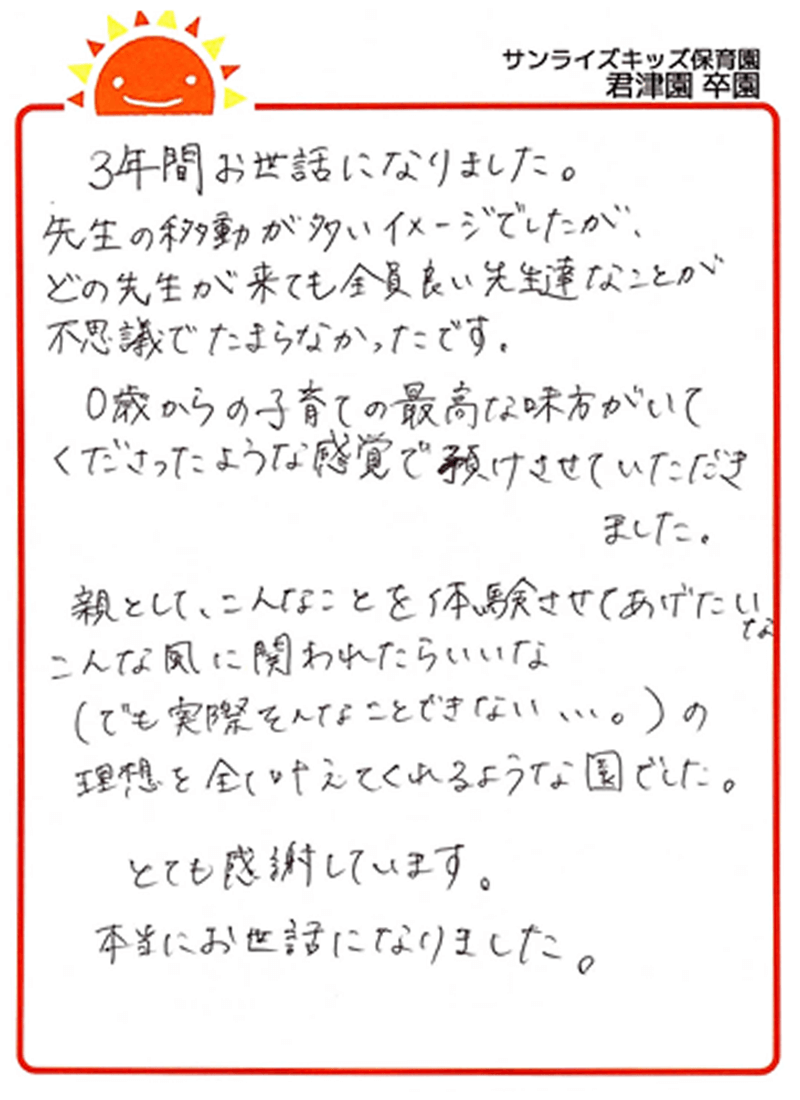 サンライズキッズ保育園
君津園 卒園
3年間お世話になりました。
先生の移動が多いイメージでしたが、
どの先生が来ても全員良い先生達なことが
不思議でたまらなかったです。
0歳からの子育ての最高な味方がいて
くださったような感覚で預けさせていただき
ました。
親として、こんなことを体験させてあげたいな
こんな風に関われたらいいな
(でも実際そんなことできない、、、。)の
理想を全て叶えてくれるような園でした。
とても感謝しています。
本当にお世話になりました。